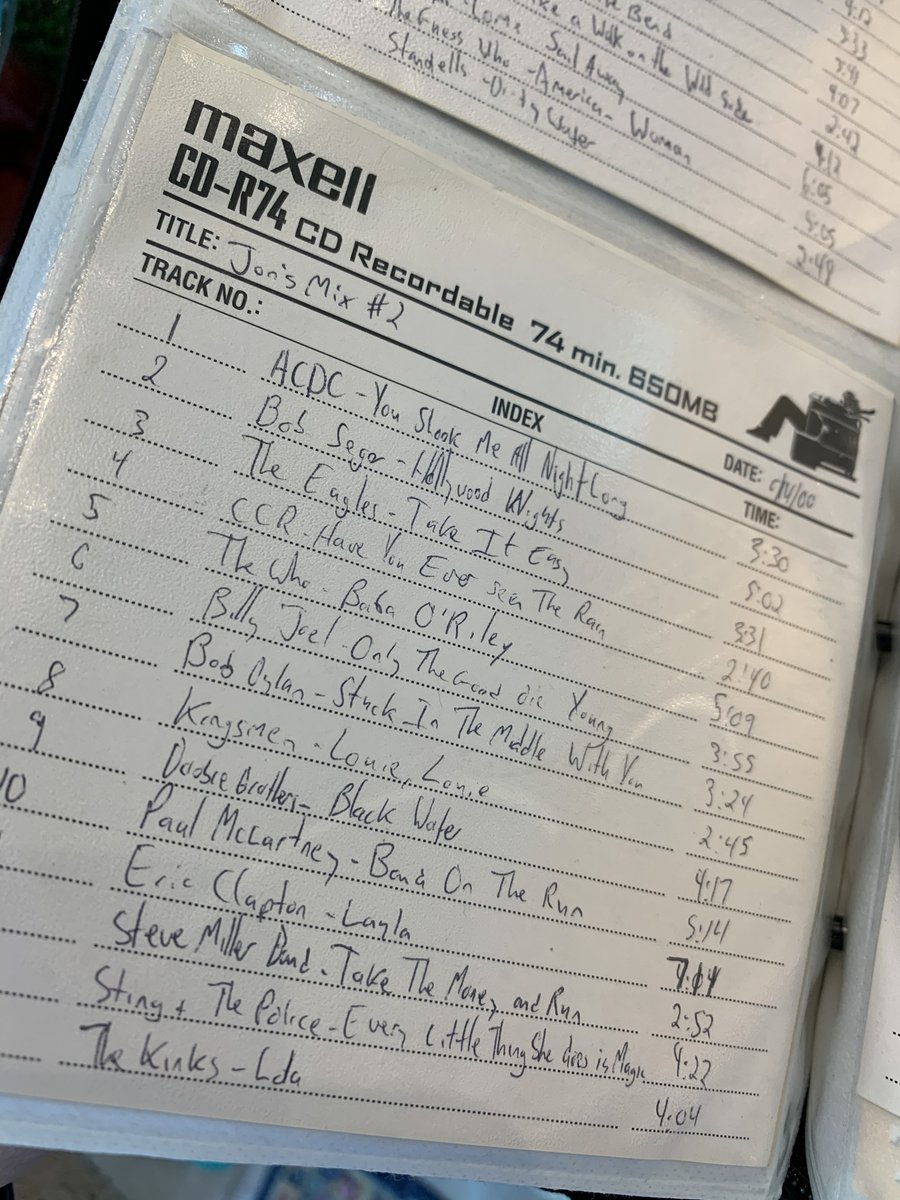 Bend
a Walk on the Wild Side
Come Sail Away
The Guess Who - American Woman
Standells - Dirty Water
3:33
4:07
2:42
4:12
6:05
2:49
maxell
CD-R74 CD Recordable 74 min. 650MB
TITLE: Jon's Mix #2
TRACK NO.: INDEX DATE: TIME:
1 ACDC - You Shook Me All Night Long 3:30
2 Bob Seger - Hollywood Nights 5:02
3 The Eagles - Take It Easy 3:31
4 CCR - Have You Ever seen The Rain 2:40
5 The Who - Baba O'Riley 5:09
6 Billy Joel - Only The Good die Young 3:55
7 Bob Dylan - Stuck In The Middle With You 3:24
8 Kingsmen - Louie, Louie 2:45
9 Doobie Brothers - Black Water 4:17
10 Paul McCartney - Band On The Run 5:14
Eric Clapton - Layla 7:04
Steve Miller Band - Take The Money and Run 2:52
Sting + The Police - Every Little Thing She does is Magic 4:22
The Kinks - Lola 4:04